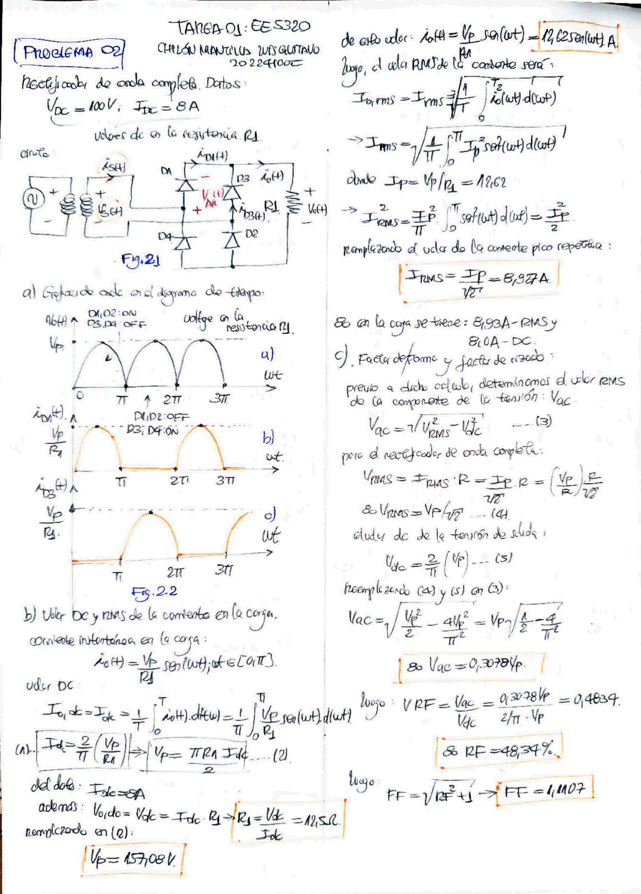 TAREA 01: EE5320
PROBLEMA 02
20224100E
Rectificador de onda completa. Datos:
V_DC = 100V, I_DC = 8A
valores dc en la resistencia R1
circuito
i_s(t)
i_D1(t)
D1
D3
i_o(t)
+
-
V_s(t)
i_D3(t)
R1
V_o(t)
D4
D2
Fig. 2.1
a) Gráficas de onda en el diagrama de tiempo:
v_o(t)
D1,D2: ON
D3,D4: OFF
voltaje en la resistencia R1.
Vp
a)
0
π
2π
3π
wt
D1,D2: OFF
D3,D4: ON
i_D1(t)
Vp/R1
b)
π
2π
3π
wt.
i_D3(t)
Vp/R1
c)
π
2π
3π
wt
Fig. 2.2
b) Valor DC y RMS de la corriente en la carga.
corriente instantánea en la carga:
i_o(t) = Vp/R1 sen(wt); wt ∈ [0,π].
valor DC:
I_o,dc = I_dc = 1/T ∫_0^T i_o(t).d(wt) = 1/π ∫_0^π Vp/R1 sen(wt).d(wt)
I_dc = 2/π (Vp/R1) → Vp = πR1 I_dc / 2 .... (2).
del dato: I_dc = 8A
además: V_o,dc = V_dc = I_dc · R1 → R1 = V_dc/I_dc = 12,5Ω.
remplazando en (2):
Vp = 157,08 V.
de esto valor: i_o(t) = Vp/R1 sen(wt) = 12,62 sen(wt) A.
luego, el valor RMS de la corriente será:
→ I_rms = √(1/π ∫_0^π Ip² sen²(wt) d(wt))
donde Ip = Vp/R1 = 12,62
→ I²_RMS = Ip²/π ∫_0^π sen²(wt) d(wt) = Ip²/2
remplazando el valor de la corriente pico repetitiva:
I_RMS = Ip/√2 = 8,927 A.
∴ en la carga se tiene: 8,93A-RMS y
8,0A-DC.
c). Factor de forma y factor de rizado:
previo a dicho cálculo, determinamos el valor RMS
de la componente de la tensión: Vac
Vac = √(V²_RMS - V²_dc) .... (3)
para el rectificador de onda completa:
V_RMS = I_RMS · R = Ip/√2 · R = (Vp/R) R/√2
∴ V_RMS = Vp/√2 .... (4)
el valor dc de la tensión de salida:
V_dc = 2/π (Vp) .... (5)
Reemplazando (4) y (5) en (3):
Vac = √(Vp²/2 - 4Vp²/π²) = Vp √(1/2 - 4/π²)
∴ Vac = 0,3078Vp.
luego: VRF = Vac/Vdc = 0,3078Vp / (2/π · Vp) = 0,4834.
∴ RF = 48,34%.
luego
FF = √(RF² + 1) → FF = 1,1107